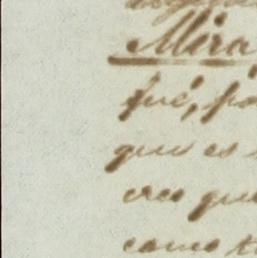 Mira
fué, pa
que es
creo que
como t